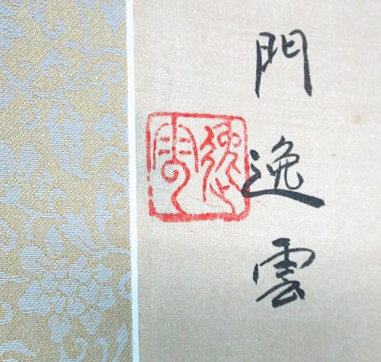 門逸雲